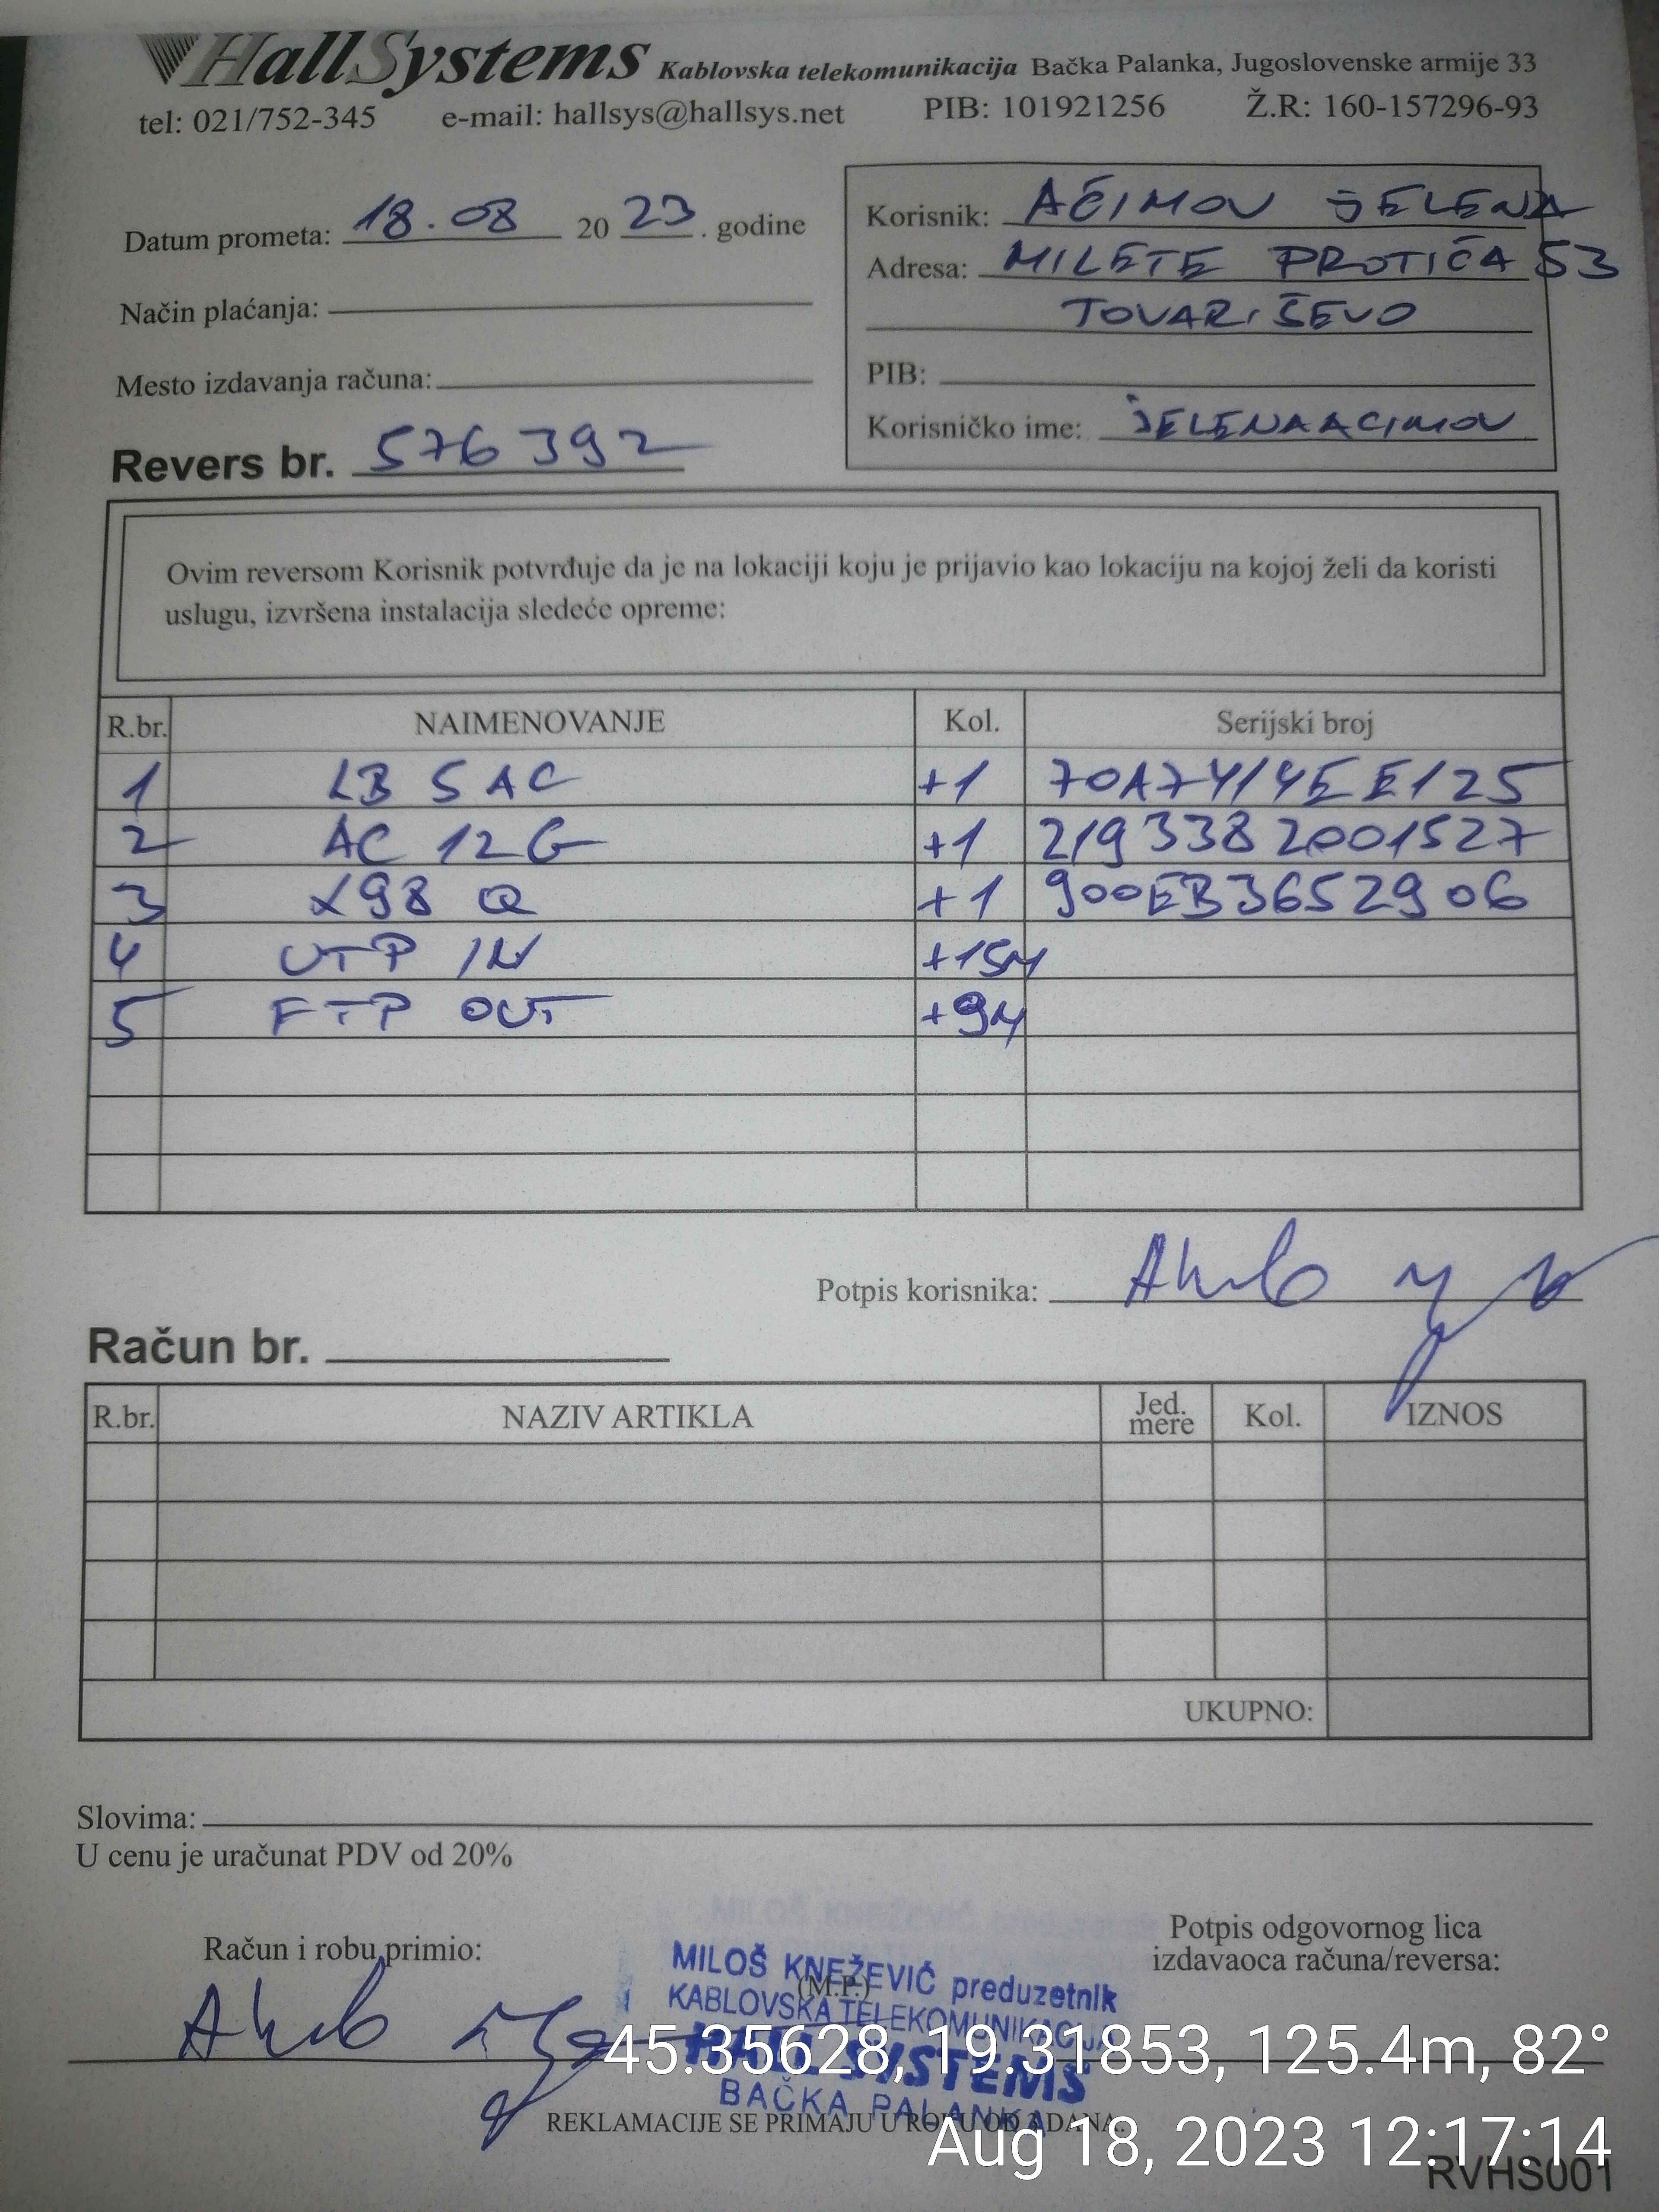 HallSystems Kablovska telekomunikacija Bačka Palanka, Jugoslovenske armije 33
tel: 021/752-345 e-mail: hallsys@hallsys.net PIB: 101921256 Ž.R: 160-157296-93
Datum prometa: 18.08 2023. godine
Način plaćanja:
Mesto izdavanja računa:
Revers br. 576392
Korisnik: AĆIMOV JELENA
Adresa: MILETE PROTIĆA 53
TOVARIŠEVO
PIB:
Korisničko ime: JELENAACIMOV
Ovim reversom Korisnik potvrđuje da je na lokaciji koju je prijavio kao lokaciju na kojoj želi da koristi
uslugu, izvršena instalacija sledeće opreme:
R.br. NAIMENOVANJE Kol. Serijski broj
1 LB 5 AC +1 70A7414EE125
2 AC 12G +1 2193382001527
3 X98 Q +1 900EB3652906
4 UTP IN +15M
5 FTP OUT +9M
Potpis korisnika:
Račun br.
R.br. NAZIV ARTIKLA Jed. mere Kol. IZNOS
UKUPNO:
Slovima:
U cenu je uračunat PDV od 20%
Račun i robu primio:
(M.P.)
Potpis odgovornog lica
izdavaoca računa/reversa:
MILOŠ KNEŽEVIĆ preduzetnik
KABLOVSKA TELEKOMUNIKACIJA
HALL SYSTEMS
BAČKA PALANKA
45.35628, 19.31853, 125.4m, 82°
REKLAMACIJE SE PRIMAJU U ROKU OD 3 DANA.
Aug 18, 2023 12:17:14
RVHS001